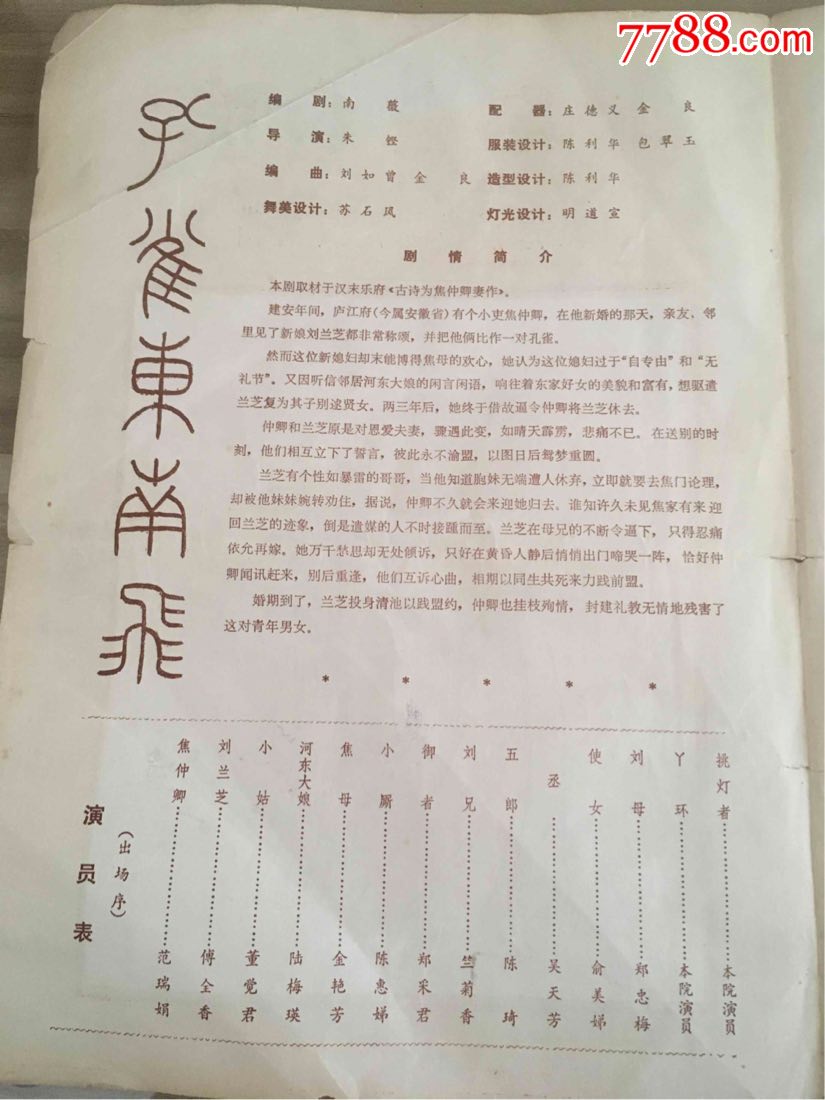 7788.com
孔雀東南飛
编剧：南薇
配器：庄德义 金良
导演：朱铿
服装设计：陈利华 包翠玉
编曲：刘如曾 金良
造型设计：陈利华
舞美设计：苏石风
灯光设计：明道宣
剧情简介
本剧取材于汉末乐府《古诗为焦仲卿妻作》。
建安年间，庐江府（今属安徽省）有个小吏焦仲卿，在他新婚的那天，亲友、邻
里见了新娘刘兰芝都非常称颂，并把他俩比作一对孔雀。
然而这位新媳妇却未能博得焦母的欢心，她认为这位媳妇过于“自专由”和“无
礼节”。又因听信邻居河东大娘的闲言闲语，响往着东家好女的美貌和富有，想驱遣
兰芝复为其子别逑贤女。两三年后，她终于借故逼令仲卿将兰芝休去。
仲卿和兰芝原是对恩爱夫妻，骤遇此变，如晴天霹雳，悲痛不已。在送别的时
刻，他们相互立下了誓言，彼此永不渝盟，以图日后鸳梦重圆。
兰芝有个性如暴雷的哥哥，当他知道胞妹无端遭人休弃，立即就要去焦门论理，
却被他妹妹婉转劝住，据说，仲卿不久就会来迎她归去。谁知许久未见焦家有来迎
回兰芝的迹象，倒是遣媒的人不时接踵而至。兰芝在母兄的不断令逼下，只得忍痛
依允再嫁。她万千愁思却无处倾诉，只好在黄昏人静后悄悄出门啼哭一阵，恰好仲
卿闻讯赶来，别后重逢，他们互诉心曲，相期以同生共死来力践前盟。
婚期到了，兰芝投身清池以践盟约，仲卿也挂枝殉情，封建礼教无情地残害了
这对青年男女。
* * * * *
演员表
（出场序）
焦仲卿……范瑞娟
刘兰芝……傅全香
小姑……董觉君
河东大娘……陆梅瑛
焦母……金艳芳
小厮……陈惠娣
御者……郑采君
刘兄……竺菊香
五郎……陈琦
丞……吴天芳
使女……俞美娣
刘母……郑忠梅
丫环……本院演员
挑灯者……本院演员